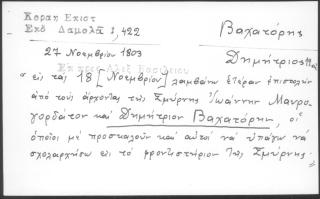 Κοραη Επιστ
Εκδ Δαμαλα 1,422
Βαχατόρης
Δημήτριος
27 Νοεμβριου 1803
" εις ταί 18 [Νοεμβρίου] λαμβάνω ἑτέραν ἐπιστολήν
ἀπό τούς ἄρχοντας τῆς Σμύρνης Ἰωάννην Μαυρο
γορδᾶτον καί Δημήτριον Βαχατόρην, οἱ
ὁποῖοι μέ προσκαλοῦν καί αὐτοί νά ὑπάγω νά
σχολαρχήσω εἰς τό φροντιστήριον τῆς Σμύρνης "